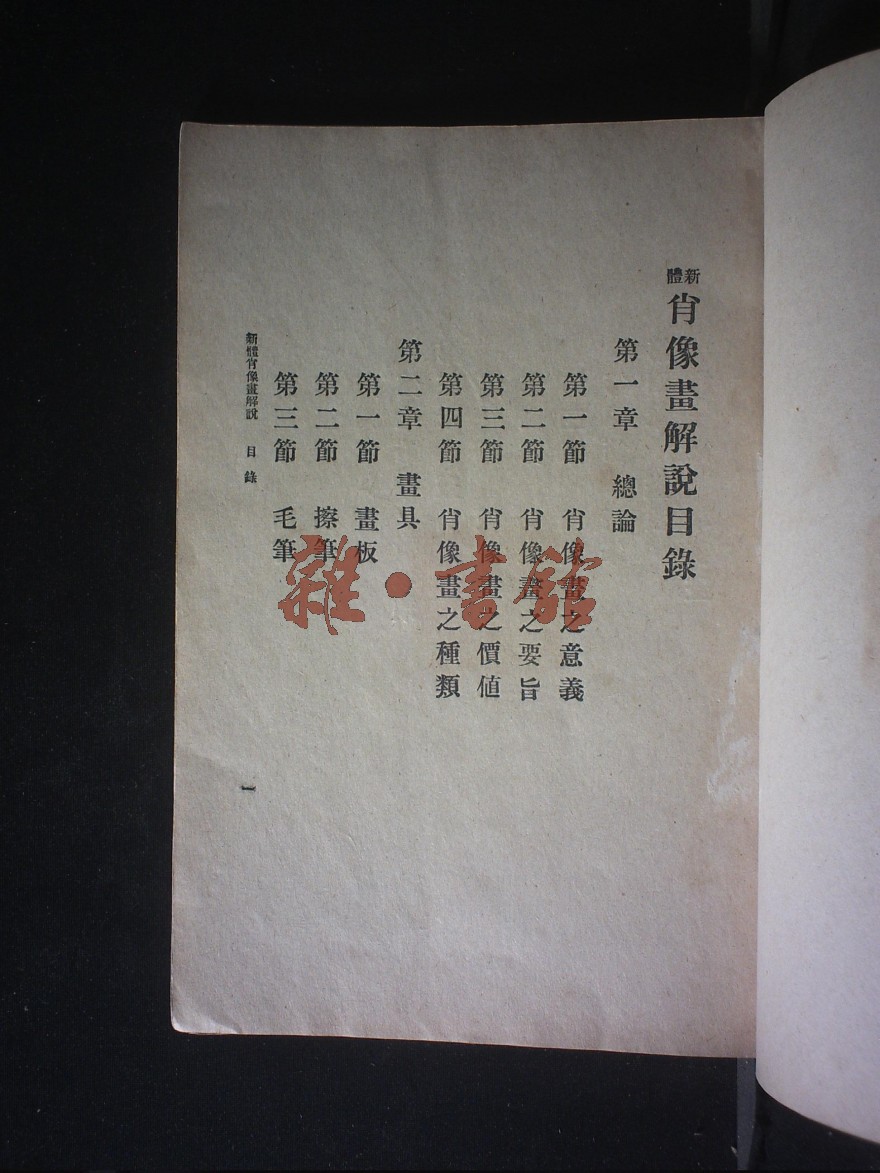 新體肖像畫解說目錄
第一章 總論
第一節 肖像畫之意義
第二節 肖像畫之要旨
第三節 肖像畫之價値
第四節 肖像畫之種類
第二章 畫具
第一節 畫板
第二節 擦筆
第三節 毛筆
新體肖像畫解說 目錄
一
雜·書館